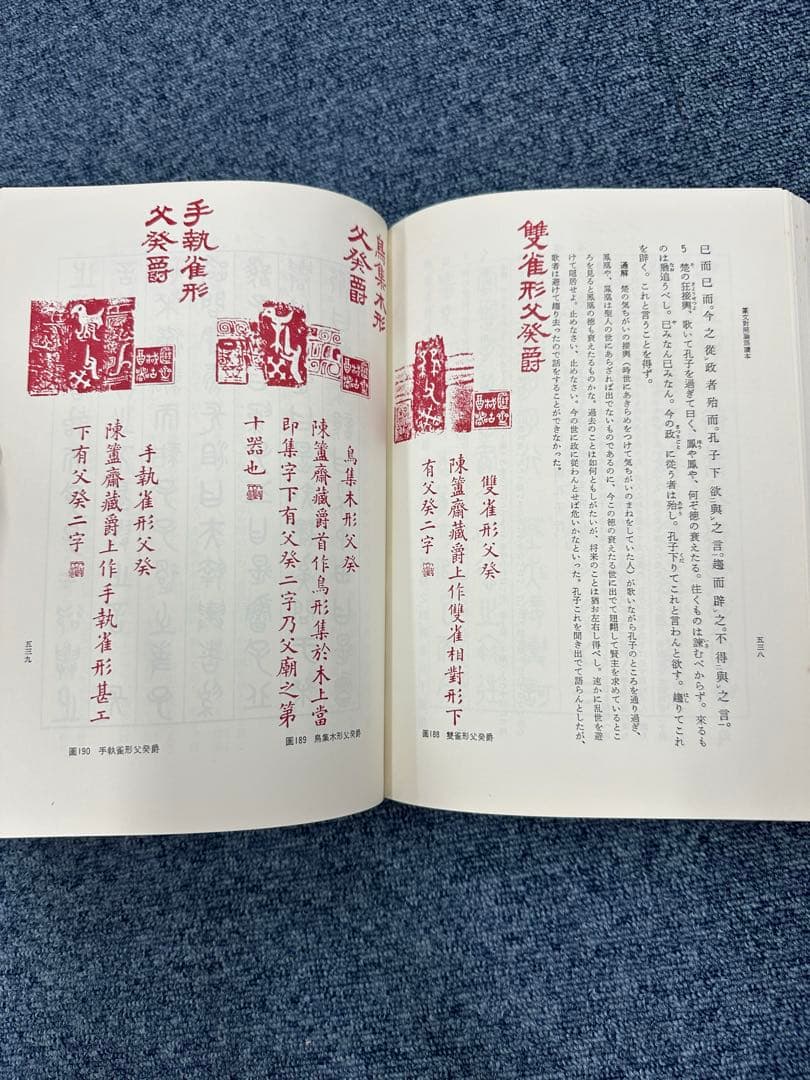 篆文對照論語讀本
五三八
已而已而。今之從政者殆而。孔子下欲與之言。趨而辟之。不得與之言。
5 楚の狂接輿、歌いて孔子を過ぎて曰く、鳳や鳳や、何ぞ徳の衰えたる。往くものは諫むべからず。來るも
のは猶追うべし。已みなん已みなん。今の政に従う者は殆し。孔子下りてこれと言わんと欲す。趨りてこれ
を辟く。これと言うことを得ず。
通解 楚の気ちがいの接輿(時世にあきらめをつけて気ちがいのまねをしていた人)が歌いながら孔子のところを通り過ぎ、
鳳凰や、鳳凰は聖人の世にあらざれば出でないものであるのに、今この徳の衰えたる世に出でて翅翔して賢主を求めているとこ
ろを見ると鳳凰の徳も衰えたるものかな。過去のことは如何ともしがたいが、将来のことは猶お左右し得べし。速かに乱世を避
けて隠居せよ。止めなさい、止めなさい。今の世に政に従わんとせば危いかなといった。孔子これを聞き出でて語らんとしたが、
歌者は避けて趨り去ったので話をすることができなかった。
雙雀形父癸爵
雙雀形父癸
陳簠齋藏爵上作雙雀相對形下
有父癸二字
圖188 雙雀形父癸爵
鳥集木形
父癸爵
鳥集木形父癸
陳簠齋藏爵首作鳥形集於木上當
即集字下有父癸二字乃父廟之第
十器也
圖189 鳥集木形父癸爵
手執雀形
父癸爵
手執雀形父癸
陳簠齋藏爵上作手執雀形甚工
下有父癸二字
圖190 手執雀形父癸爵
五三九